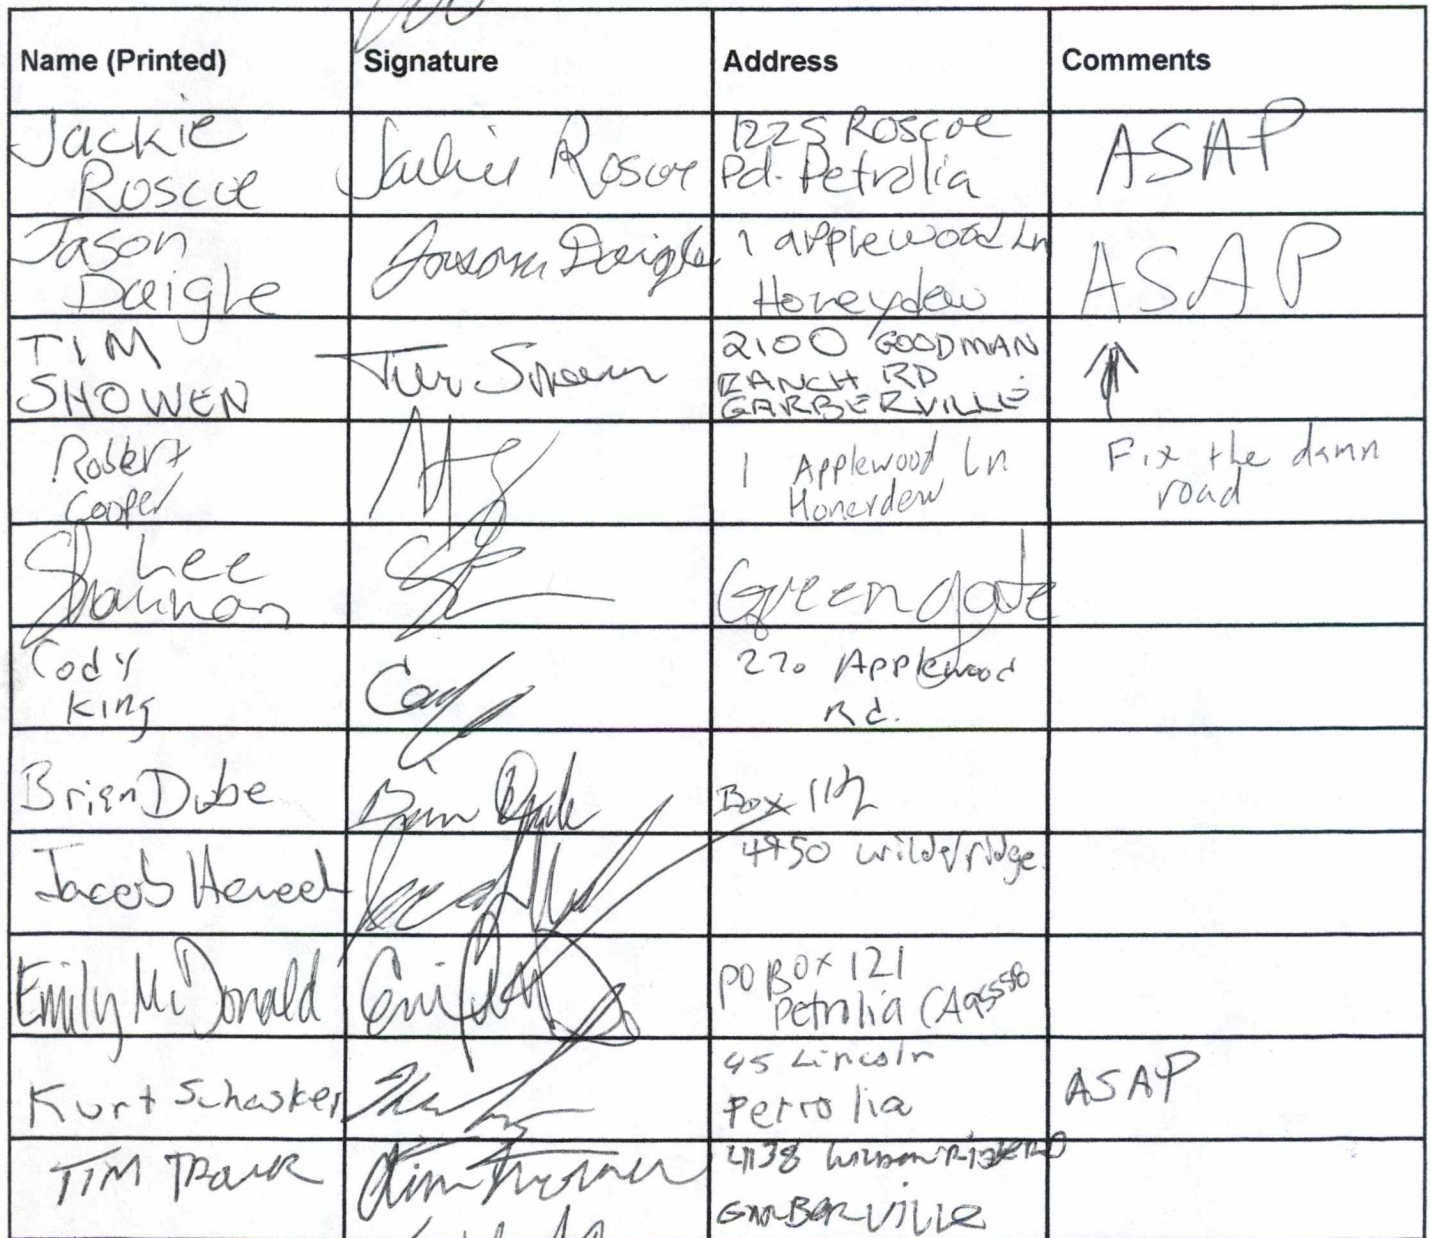 Name (Printed) Signature Address Comments
Jackie
Roscoe
Jackie Roscoe
1225 Roscoe
Rd. Petrolia
ASAP
Jason
Daigle
Jason Daigle
1 applewood Ln
Honeydew
ASAP
TIM
SHOWEN
Tim Showen
2100 GOODMAN
RANCH RD
GARBERVILLE
↑
Robert
Cooper
1 Applewood Ln
Honeydew
Fix the damn
road
Lee
Shannon
Greengate
Cody
King
270 Applewood
Rd.
Brian Dube
Brian Dube
Box
Jacob
4450
Emily McDonald
PO Box 121
Petrolia CA 95558
Kurt
45 Lincoln
Petrolia
ASAP
TIM
Tim
GARBERVILLE